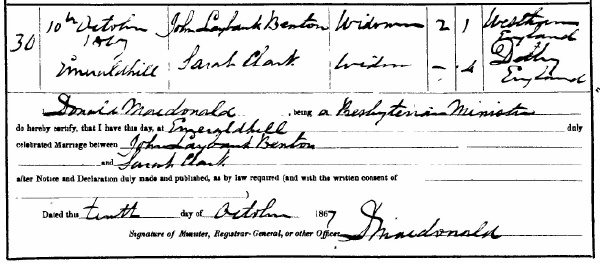 30 10th October 1867 John Laybank Benton Widower 2 1 Westham England
Emeraldhill Sarah Clark Widow - 4 England
I Donald Macdonald, being a Presbyterian Minister
do hereby certify, that I have this day, at Emeraldhill duly
celebrated Marriage between John Laybank Benton
and Sarah Clark
after Notice and Declaration duly made and published, as by law required (and with the written consent of
Dated this tenth day of October 1867
Signature of Minister, Registrar-General, or other Officer D Macdonald